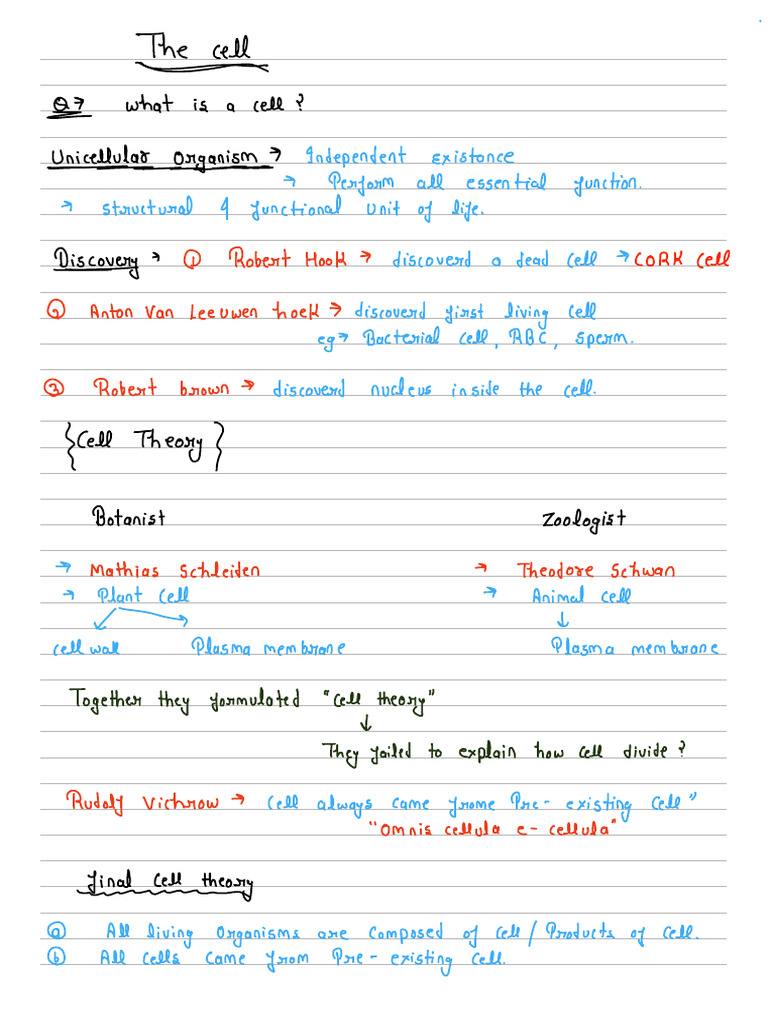 The cell
Q→ What is a cell?
Unicellular Organism → Independent existance
→ Perform all essential function.
→ Structural & functional Unit of life.
Discovery → ① Robert Hook → discoverd a dead cell → CORK cell
② Anton Van Leeuwen hoek → discoverd first living cell
eg → Bacterial cell, RBC, sperm.
③ Robert brown → discoverd nucleus inside the cell.
{Cell Theory}
Botanist Zoologist
→ Mathias Schleiden → Theodore Schwan
→ Plant Cell → Animal cell
cell wall Plasma membrane Plasma membrane
Together they formulated "cell theory"
They failed to explain how cell divide?
Rudolf Vichrow → cell always came frome Pre-existing cell"
"Omnis cellula e-cellula"
final cell theory
ⓐ All living Organisms are Composed of cell/Products of cell.
ⓑ All cells came from Pre-existing cell.